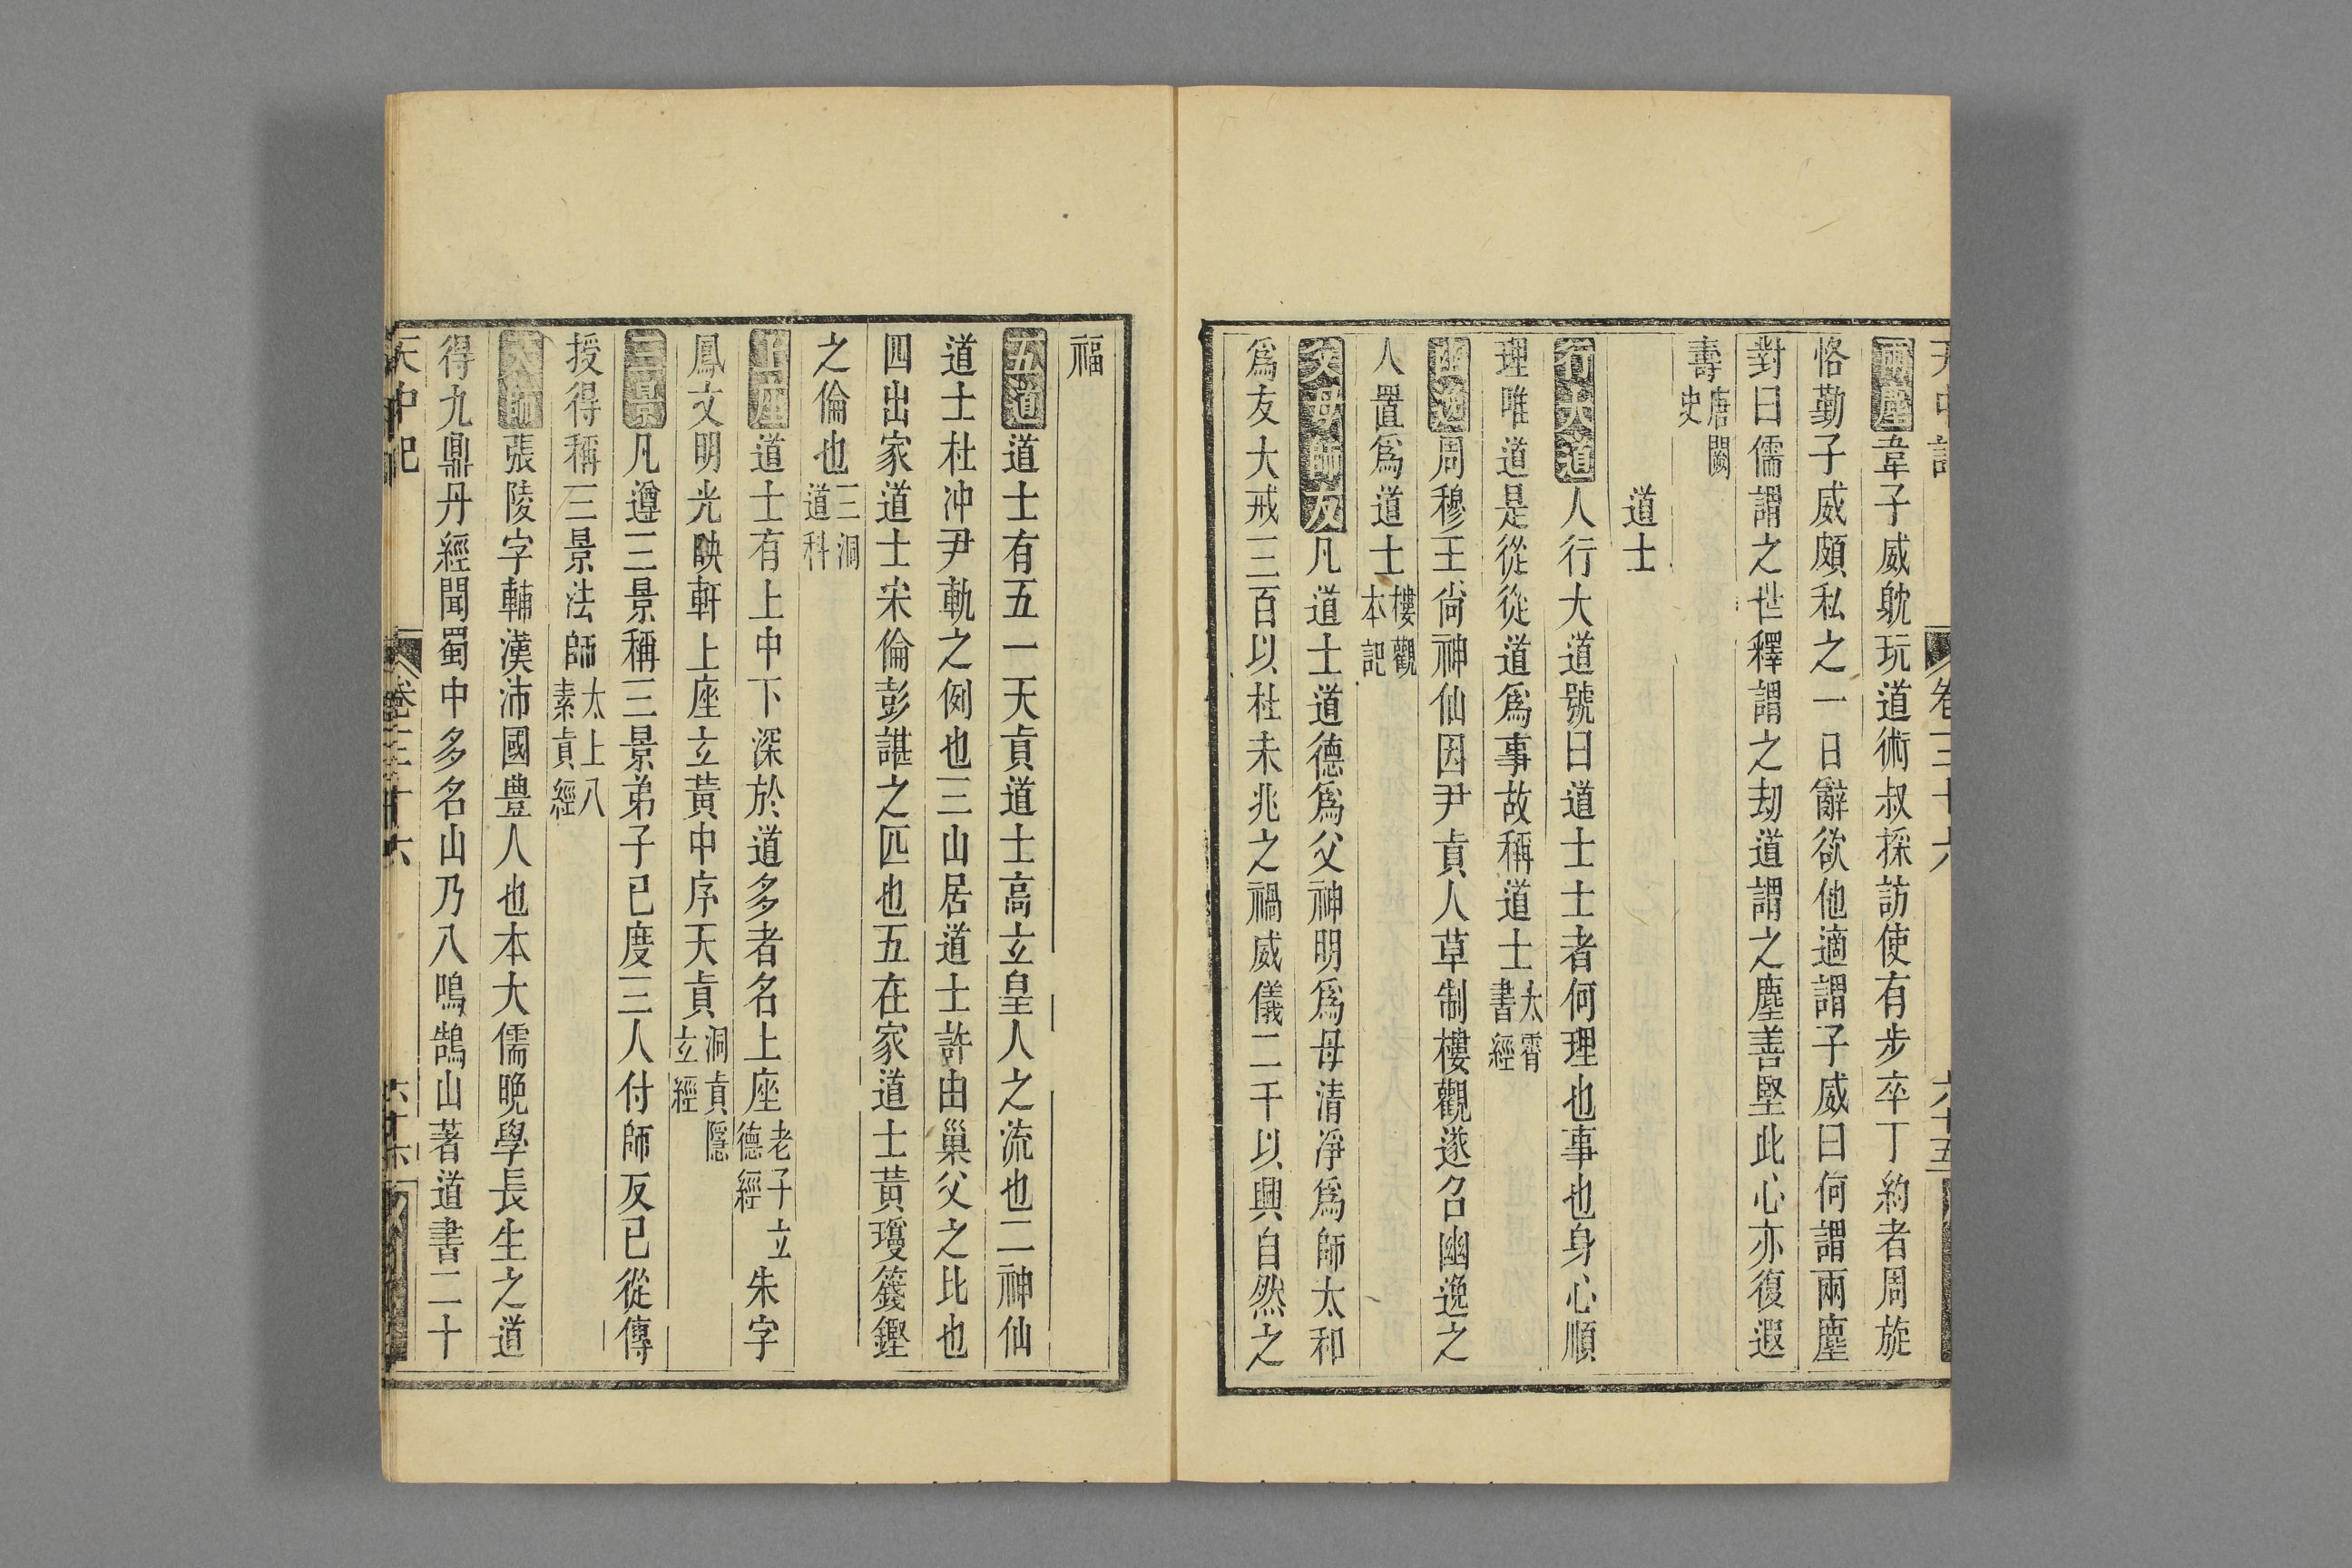 天中記 卷三十六 六十五
兩塵韋子威躭玩道術叔採訪使有步卒丁約者周旋
恪勤子威頗私之一日辭欲他適謂子威曰何謂兩塵
對曰儒謂之世釋謂之刧道謂之塵善堅此心亦復遐
壽唐闕史
道士
行大道人行大道號曰道士士者何理也事也身心順
理唯道是從從道爲事故稱道士太霄書經
幽逸周穆王尙神仙因尹眞人草制樓觀遂召幽逸之
人置爲道士樓觀本記
父母師友凡道士道德爲父神明爲母清凈爲師太和
爲友大戒三百以杜未兆之禍威儀二千以興自然之
福
五道道士有五一天眞道士高立皇人之流也二神仙
道士杜沖尹軌之例也三山居道士許由巢父之比也
四出家道士宋倫彭諶之匹也五在家道士黃瓊籛鏗
之倫也三洞道科
上座道士有上中下深於道多者名上座老子立德經朱字
鳳文明光映軒上座立黃中序天眞洞眞隱立經
三景凡遵三景稱三景弟子已度三人付師反已從傳
授得稱三景法師太上八素眞經
天師張陵字輔漢沛國豊人也本大儒晚學長生之道
得九鼎丹經聞蜀中多名山乃入鳴鵠山著道書二十
天中記 卷三十六 六十六